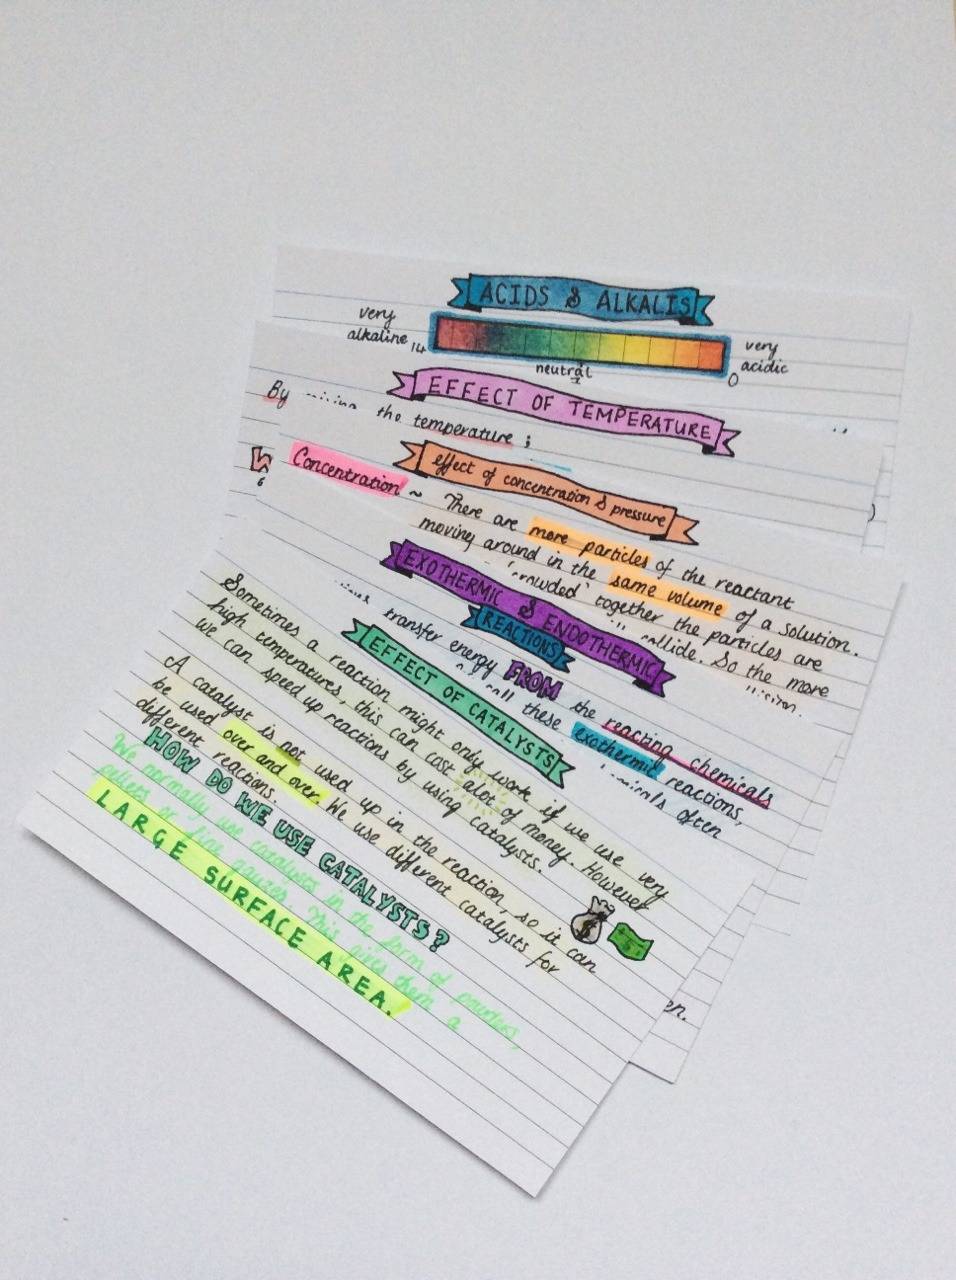 ACIDS & ALKALIS
very
alkaline 14
neutral
7
very
acidic
0
EFFECT OF TEMPERATURE
By the temperature ;
effect of concentration & pressure
Concentration ~ There are more particles of the reactant
moving around in the same volume of a solution.
'crowded' together the particles are
collide. So the more
EXOTHERMIC & ENDOTHERMIC
REACTIONS
transfer energy FROM the reacting chemicals
call these exothermic reactions,
often
EFFECT OF CATALYSTS
Sometimes a reaction might only work if we use very
high temperatures, this can cost alot of money. However
we can speed up reactions by using catalysts.
A catalyst is not used up in the reaction, so it can
be used over and over. We use different catalysts for
different reactions.
HOW DO WE USE CATALYSTS?
We normally use catalysts in the form of powders,
pellets or fine gauzes. This gives them a
LARGE SURFACE AREA.
en.